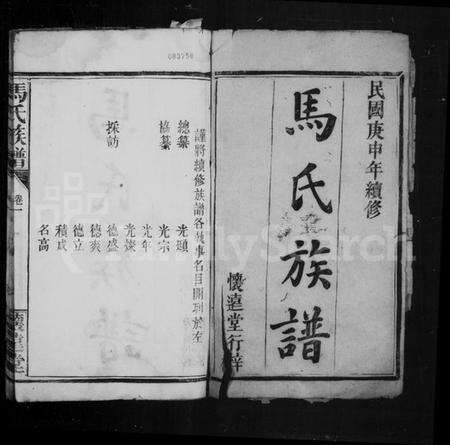 民國庚申年續修
馬氏族譜
懷遠堂行梓
083758
謹將續修族譜各執事名目開列於左
總纂
光題
協纂
光宗
光年
採訪
光燦
德盛
德爽
德立
積成
名高
馬氏族譜
卷一
懷遠堂
FamilySearch